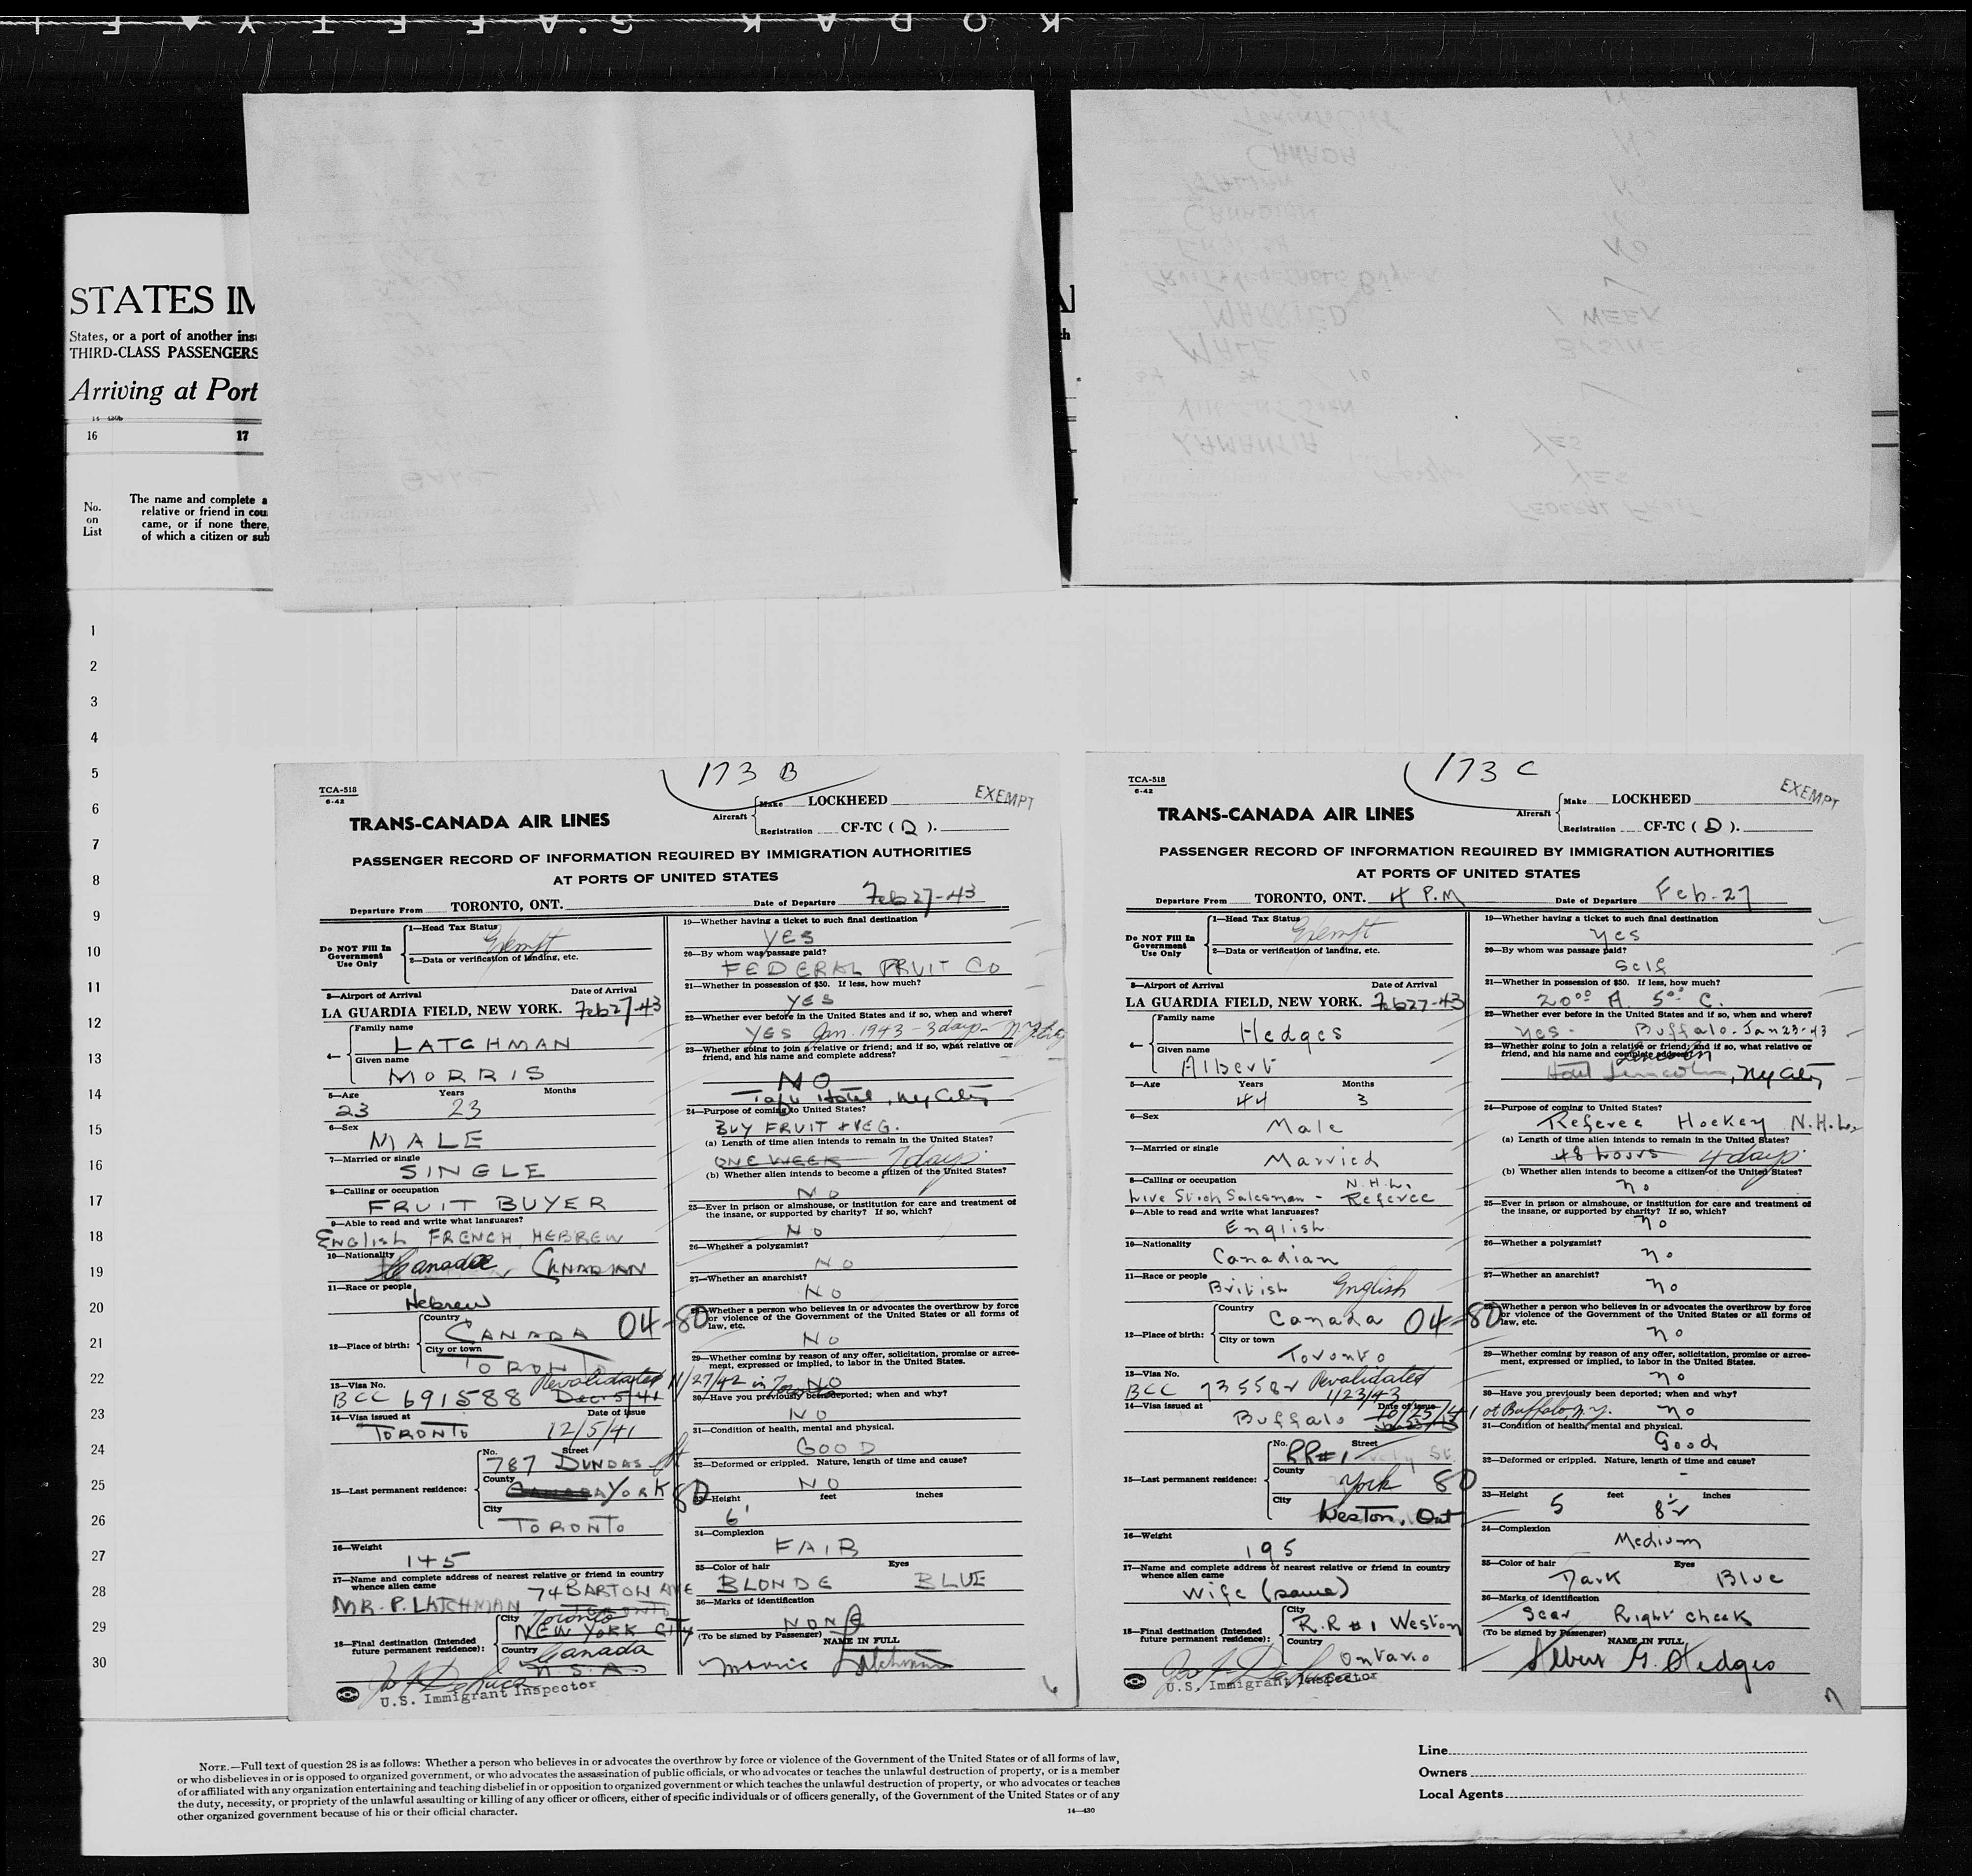 KODAK SAFETY
STATES IM
States, or a port of another ins
THIRD-CLASS PASSENGERS
Arriving at Port
16 17
No. on List
The name and complete a
relative or friend in cou
came, or if none there,
of which a citizen or sub
1
2
3
4
5
6
7
8
9
10
11
12
13
14
15
16
17
18
19
20
21
22
23
24
25
26
27
28
29
30
173 B
TCA-518
6-42
EXEMPT
TRANS-CANADA AIR LINES
Aircraft
Make LOCKHEED
Registration CF-TC ( D ).
PASSENGER RECORD OF INFORMATION REQUIRED BY IMMIGRATION AUTHORITIES
AT PORTS OF UNITED STATES
Departure From TORONTO, ONT. Date of Departure Feb 27-43
Do NOT Fill In Government Use Only
1—Head Tax Status
Exempt
2—Data or verification of landing, etc.
3—Airport of Arrival Date of Arrival
LA GUARDIA FIELD, NEW YORK. Feb 27-43
4— Family name
LATCHMAN
Given name
MORRIS
5—Age Years Months
23 23
6—Sex
MALE
7—Married or single
SINGLE
8—Calling or occupation
FRUIT BUYER
9—Able to read and write what languages?
ENGLISH FRENCH, HEBREW
10—Nationality
Canada CANADIAN
11—Race or people
Hebrew
12—Place of birth:
Country
CANADA 04-80
City or town
TORONTO
13—Visa No. Revalidated 11/27/42 in
BCC 691588 Dec 5/41
14—Visa issued at Date of Issue
TORONTO 12/5/41
15—Last permanent residence:
No. Street
787 DUNDAS St
County
CANADA YORK 80
City
TORONTO
16—Weight
145
17—Name and complete address of nearest relative or friend in country
whence alien came
74 BARTON AVE
MR. P. LATCHMAN TORONTO
18—Final destination (Intended
future permanent residence):
City Toronto
NEW YORK CITY
Country Canada
U.S.A.
U.S. Immigrant Inspector
19—Whether having a ticket to such final destination
YES
20—By whom was passage paid?
FEDERAL FRUIT CO
21—Whether in possession of $50. If less, how much?
YES
22—Whether ever before in the United States and if so, when and where?
YES Jan. 1943 - 3 days - N.Y. City
23—Whether going to join a relative or friend; and if so, what relative or
friend, and his name and complete address?
NO
Taft Hotel, NY City
24—Purpose of coming to United States?
BUY FRUIT & VEG.
(a) Length of time alien intends to remain in the United States?
ONE WEEK 7 days
(b) Whether alien intends to become a citizen of the United States?
NO
25—Ever in prison or almshouse, or institution for care and treatment of
the insane, or supported by charity? If so, which?
NO
26—Whether a polygamist?
NO
27—Whether an anarchist?
NO
28—Whether a person who believes in or advocates the overthrow by force
or violence of the Government of the United States or all forms of
law, etc.
NO
29—Whether coming by reason of any offer, solicitation, promise or agree-
ment, expressed or implied, to labor in the United States.
NO
30—Have you previously been deported; when and why?
NO
31—Condition of health, mental and physical.
GOOD
32—Deformed or crippled. Nature, length of time and cause?
NO
33—Height feet inches
6'
34—Complexion
FAIR
35—Color of hair Eyes
BLONDE BLUE
36—Marks of identification
NONE
(To be signed by Passenger) NAME IN FULL
Morris Latchman
6
173 C
TCA-518
6-42
EXEMPT
TRANS-CANADA AIR LINES
Aircraft
Make LOCKHEED
Registration CF-TC ( D ).
PASSENGER RECORD OF INFORMATION REQUIRED BY IMMIGRATION AUTHORITIES
AT PORTS OF UNITED STATES
Departure From TORONTO, ONT. 4 P.M Date of Departure Feb. 27
Do NOT Fill In Government Use Only
1—Head Tax Status
Exempt
2—Data or verification of landing, etc.
3—Airport of Arrival Date of Arrival
LA GUARDIA FIELD, NEW YORK. Feb 27-43
4— Family name
Hedges
Given name
Albert
5—Age Years Months
44 3
6—Sex
Male
7—Married or single
Married
8—Calling or occupation N.H.L.
Live Stock Salesman - Referee
9—Able to read and write what languages?
English
10—Nationality
Canadian
11—Race or people
British English
12—Place of birth:
Country
Canada 04-80
City or town
Toronto
13—Visa No. Revalidated
BCC 735582 1/23/43
14—Visa issued at Date of Issue
Buffalo 10/25/41 at Buffalo, N.Y.
15—Last permanent residence:
No. Street
RR#1
County
York 80
City
Weston, Ont
16—Weight
195
17—Name and complete address of nearest relative or friend in country
whence alien came
Wife (same)
18—Final destination (Intended
future permanent residence):
City
R.R #1 Weston
Country
Ontario
U.S. Immigrant Inspector
19—Whether having a ticket to such final destination
Yes
20—By whom was passage paid?
Self
21—Whether in possession of $50. If less, how much?
20⁰⁰ A. 5⁰⁰ C.
22—Whether ever before in the United States and if so, when and where?
Yes - Buffalo - Jan 23-43
23—Whether going to join a relative or friend; and if so, what relative or
friend, and his name and complete address?
Lincoln
Hotel Lincoln, NY City
24—Purpose of coming to United States?
Referee Hockey N.H.L.
(a) Length of time alien intends to remain in the United States?
48 hours 4 days
(b) Whether alien intends to become a citizen of the United States?
no
25—Ever in prison or almshouse, or institution for care and treatment of
the insane, or supported by charity? If so, which?
no
26—Whether a polygamist?
no
27—Whether an anarchist?
no
28—Whether a person who believes in or advocates the overthrow by force
or violence of the Government of the United States or all forms of
law, etc.
no
29—Whether coming by reason of any offer, solicitation, promise or agree-
ment, expressed or implied, to labor in the United States.
no
30—Have you previously been deported; when and why?
no
31—Condition of health, mental and physical.
Good
32—Deformed or crippled. Nature, length of time and cause?
-
33—Height feet inches
5 8½
34—Complexion
Medium
35—Color of hair Eyes
Dark Blue
36—Marks of identification
Scar Right cheek
(To be signed by Passenger) NAME IN FULL
Albert G. Hedges
7
NOTE.—Full text of question 28 is as follows: Whether a person who believes in or advocates the overthrow by force or violence of the Government of the United States or of all forms of law,
or who disbelieves in or is opposed to organized government, or who advocates the assassination of public officials, or who advocates or teaches the unlawful destruction of property, or is a member
of or affiliated with any organization entertaining and teaching disbelief in or opposition to organized government or which teaches the unlawful destruction of property, or who advocates or teaches
the duty, necessity, or propriety of the unlawful assaulting or killing of any officer or officers, either of specific individuals or of officers generally, of the Government of the United States or of any
other organized government because of his or their official character.
14—430
Line
Owners
Local Agents